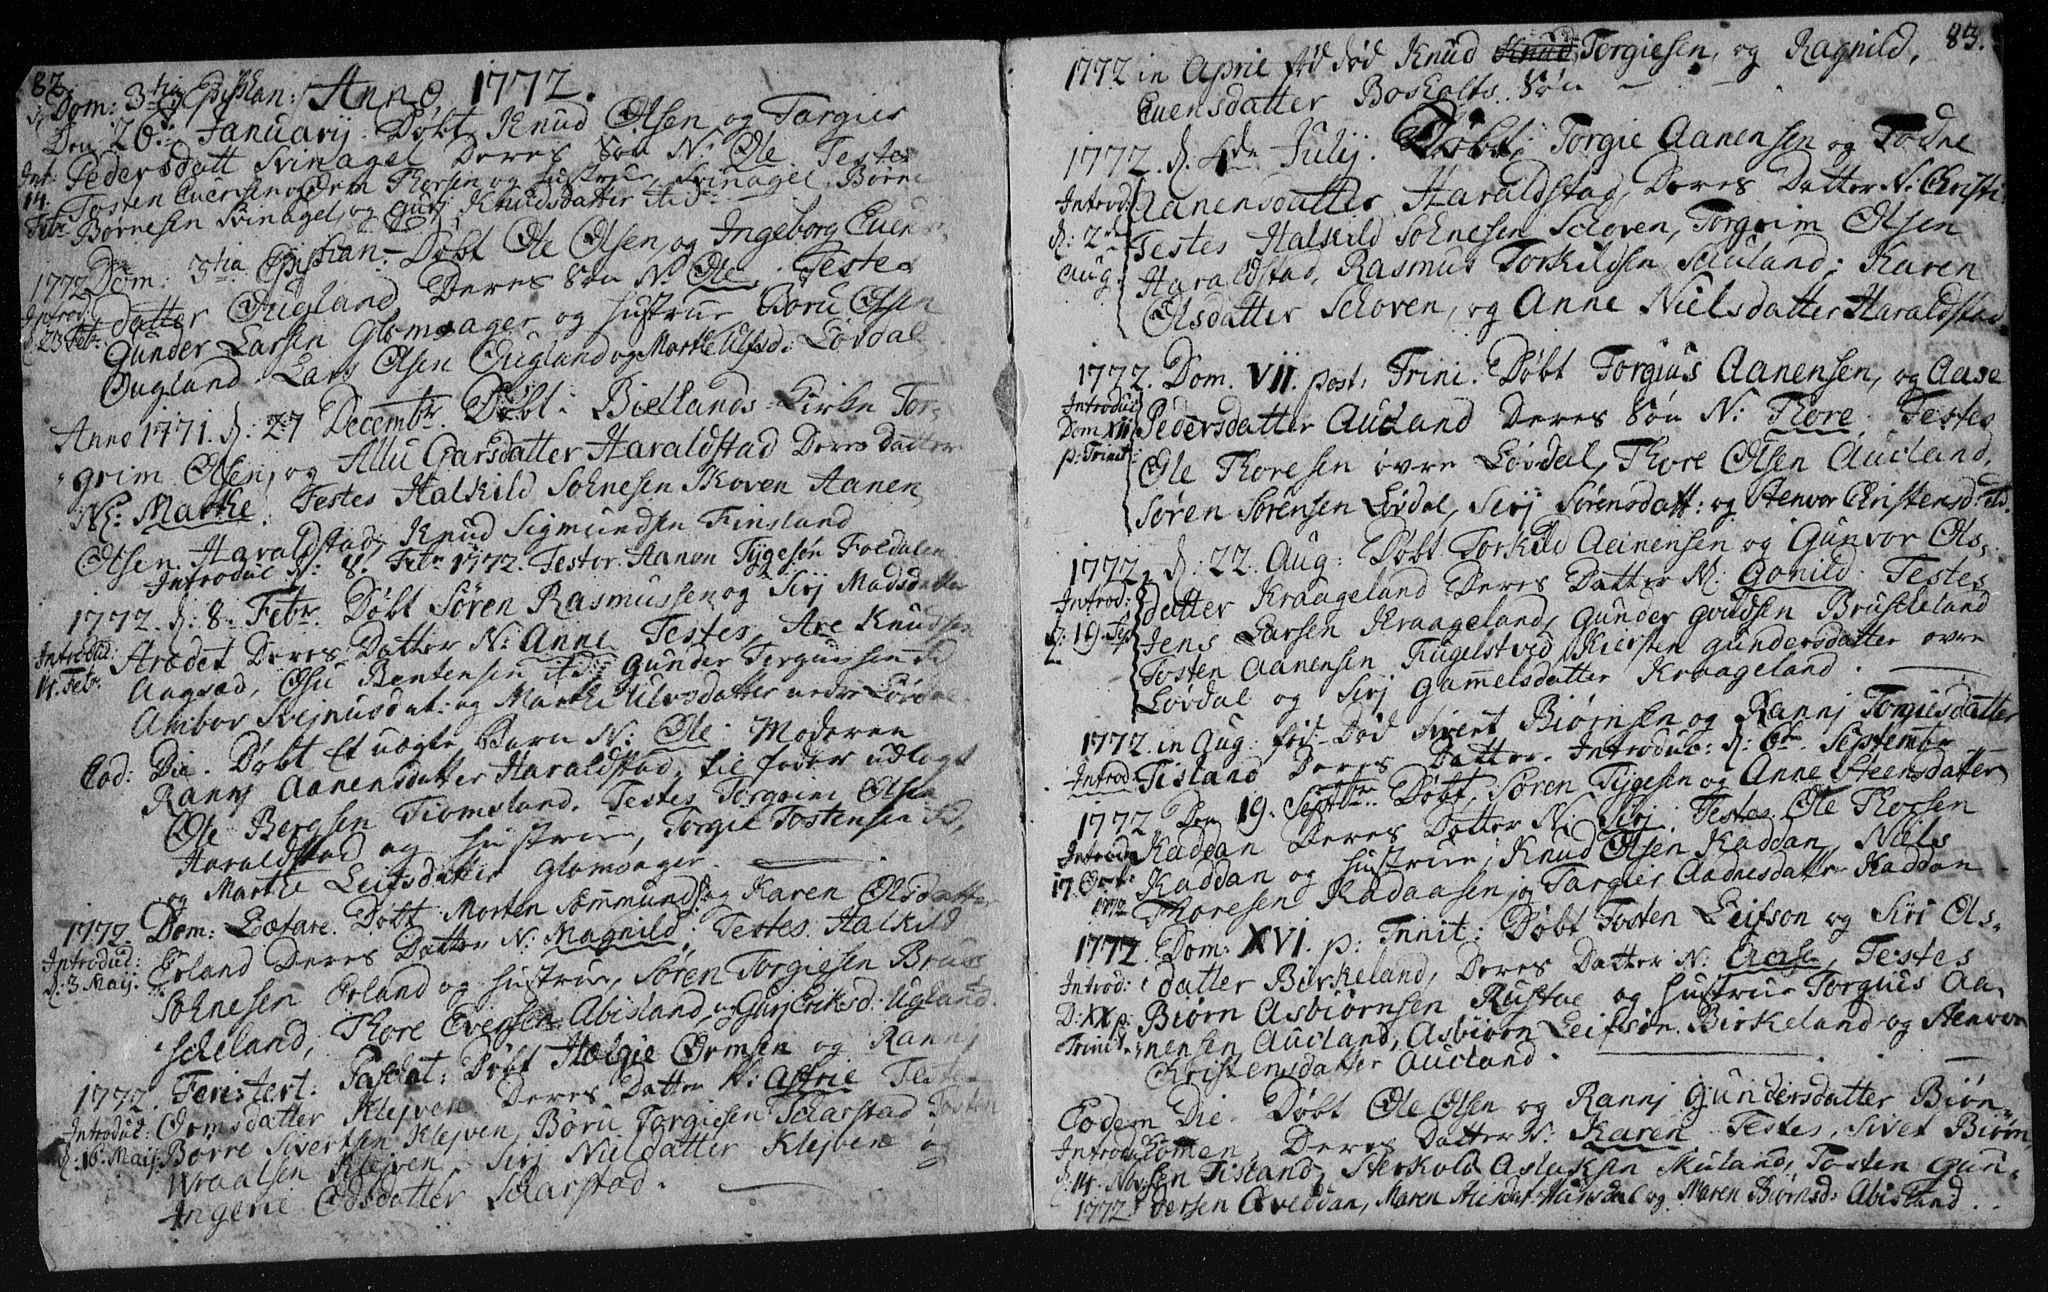 82.
Dom: 3tia Epiphan: Anno 1772.
Den 20de Januarij Døbt Knud Olsen og Targier
Pedersdatt Svinagel Deres Søn N: Ole Testes
Int: 14. Febr
Tosten Euersen Thorsen og Hustrue, Svinagel, Børne
Børnesen Svinagel, og Gurj Knudsdatter
1772 Dom: 3tia Epiphan: Døbt Ole Olsen, og Ingeborg Euens
Introd: d: 23 Febr:
datter Øugland Deres Søn N: Ole. Testes
Gunder Larsen Glomsager og Hustrue Boru Olsen
Øugland. Lars Olsen Øugland og Marthe Ulfsd: Løvdal
Anno 1771. d: 27 Decembr. Døbt i Biellands Kirke Tor-
grim Olsen, og Allu Garsdatter Haraldstad Deres Datter
N: Marthe. Testes Halkild Sohnesen Skoven Aanen
Olsen Haraldstad, Knud Sigmundsen Finsland
Introduc d: 8. Febr 1772. Testor Aanen Tygesøn Foldalen
1772. d: 8. Febr. Døbt Søren Rasmussen og Sirj Madsdatter
Introduc: 14. Febr.
Arædet Deres Datter N: Anne. Testes, Are Knudsen
Aagsæd, Osu Bentensen Gunder Torguisen
Ambor Svejnusdat: og Marthe Ulvsdatter nedre Løvdal
Eod: Die. Døbt et uægte Barn N: Ole. Moderen
Rannj Aanensdatter Haraldstad, til fader udlagt
Ole Bergsen Fiomsland. Testes Torgrim Olsen
Haraldstad og Hustrue, Torgie Tostensen
og Marthe Leifsdatter Glomsager.
1772 Dom: Lætare. Døbt Morten Sømmunds og Karen Olsdatter
Introduc: D: 3 Maij.
Erland Deres Datter N: Magnild. Testes Halkild
Sohnesen Erland og Hustrue, Søren Torgiesen Brus
heland, Thore Evensen Abisland, og Gurj Eriksd: Ugland.
1772. Feristert: Paschat: Døbt Hælgie Ormsen og Rannj
Introduc: d: 16 Maij
Ormsdatter Klejven Deres Datter N: Astrie Testes
Børre Sivertsen Klejven, Børu Torgiesen Scharstad Tosten
Wraalsen Klejven. Sirj Nielsdatter Klejven og
Ingerie Odsdatter Scharstad.
83.
1772 in April fød død Knud Knud Torgiesen, og Ragnild,
Euensdatter Bosholts Søn
1772. d. 4de Julij. Døbt, Torgie Aanensen og Todne
Introd: d: 2de Aug:
Aanensdatter Haraldstad, Deres Datter N: Christi:
Testes Halkild Sohnesen Schoven, Torgrim Olsen
Haraldstad, Rasmus Torkildsen Scauland, Karen
Olsdatter Schoven, og Anne Nielsdatter Haraldstad
1772. Dom. VII. post. Trini. Døbt Torgius Aanensen, og Aase
Introduc Dom XII p. Trinit:
Pedersdatter Aucland Deres Søn N: Thore. Testes
Ole Thoresen øvre Løvdal, Thore Olsen Aucland,
Søren Sørensen Løvdal, Sirj Sørensdatt: og Stenvor Christensd:
1772. d: 22. Aug: Døbt Torkild Aanensen og Gunvor Ols-
Introd: d: 19. Sep
datter Kraageland Deres Datter N: Gonild. Testes
Jens Larsen Kraageland, Gunder Gvidsen Bruskeland
Tosten Aanensen Fugelstved Kiersten Gundersdatter øvre
Løvdal og Sirj Gammelsdatter Kraageland.
1772 in Aug: fød-Død Sivert Biørnsen og Rannj Torgiesdatter
Introd
Tisland Deres Datter. Introduc: d: 6te Septembr
1772 Den 19. Septbr: Døbt, Søren Tygesen og Anne Steensdatter
Introd 17. Oct: 1772
Kaddan Deres Datter N: Sirj. Testes Ole Thorsen
Kaddan og Hustrue, Knud Olsen Kaddan, Niels
Thoresen Kadaasen og Targier Aadnesdatter Kaddan
1772. Dom: XVI. p: Trinit: Døbt Tosten Leifson og Siri Ols-
Introd: D: XX p: Trinit.
datter Birkeland, Deres Datter N: Aase, Testes
Biørn Asbiørnsen Rustøe og Hustrue Torgius Aa-
nensen Aucland, Asbiørn Leifsøn Birkeland og Stenvor
Christensdatter Aucland.
Eodem Die. Døbt Ole Olsen og Rannj Gundersdatter Biøn-
Introduc d: 14. Nov: 1772
tomen, Deres Datter N: Karen. Testes, Sivert Biørn-
sen Tisland, Sterkold Aslaksen Skuland, Tosten Gun-
dersen Aveddan, og Maren Biørnsd: Abisland.